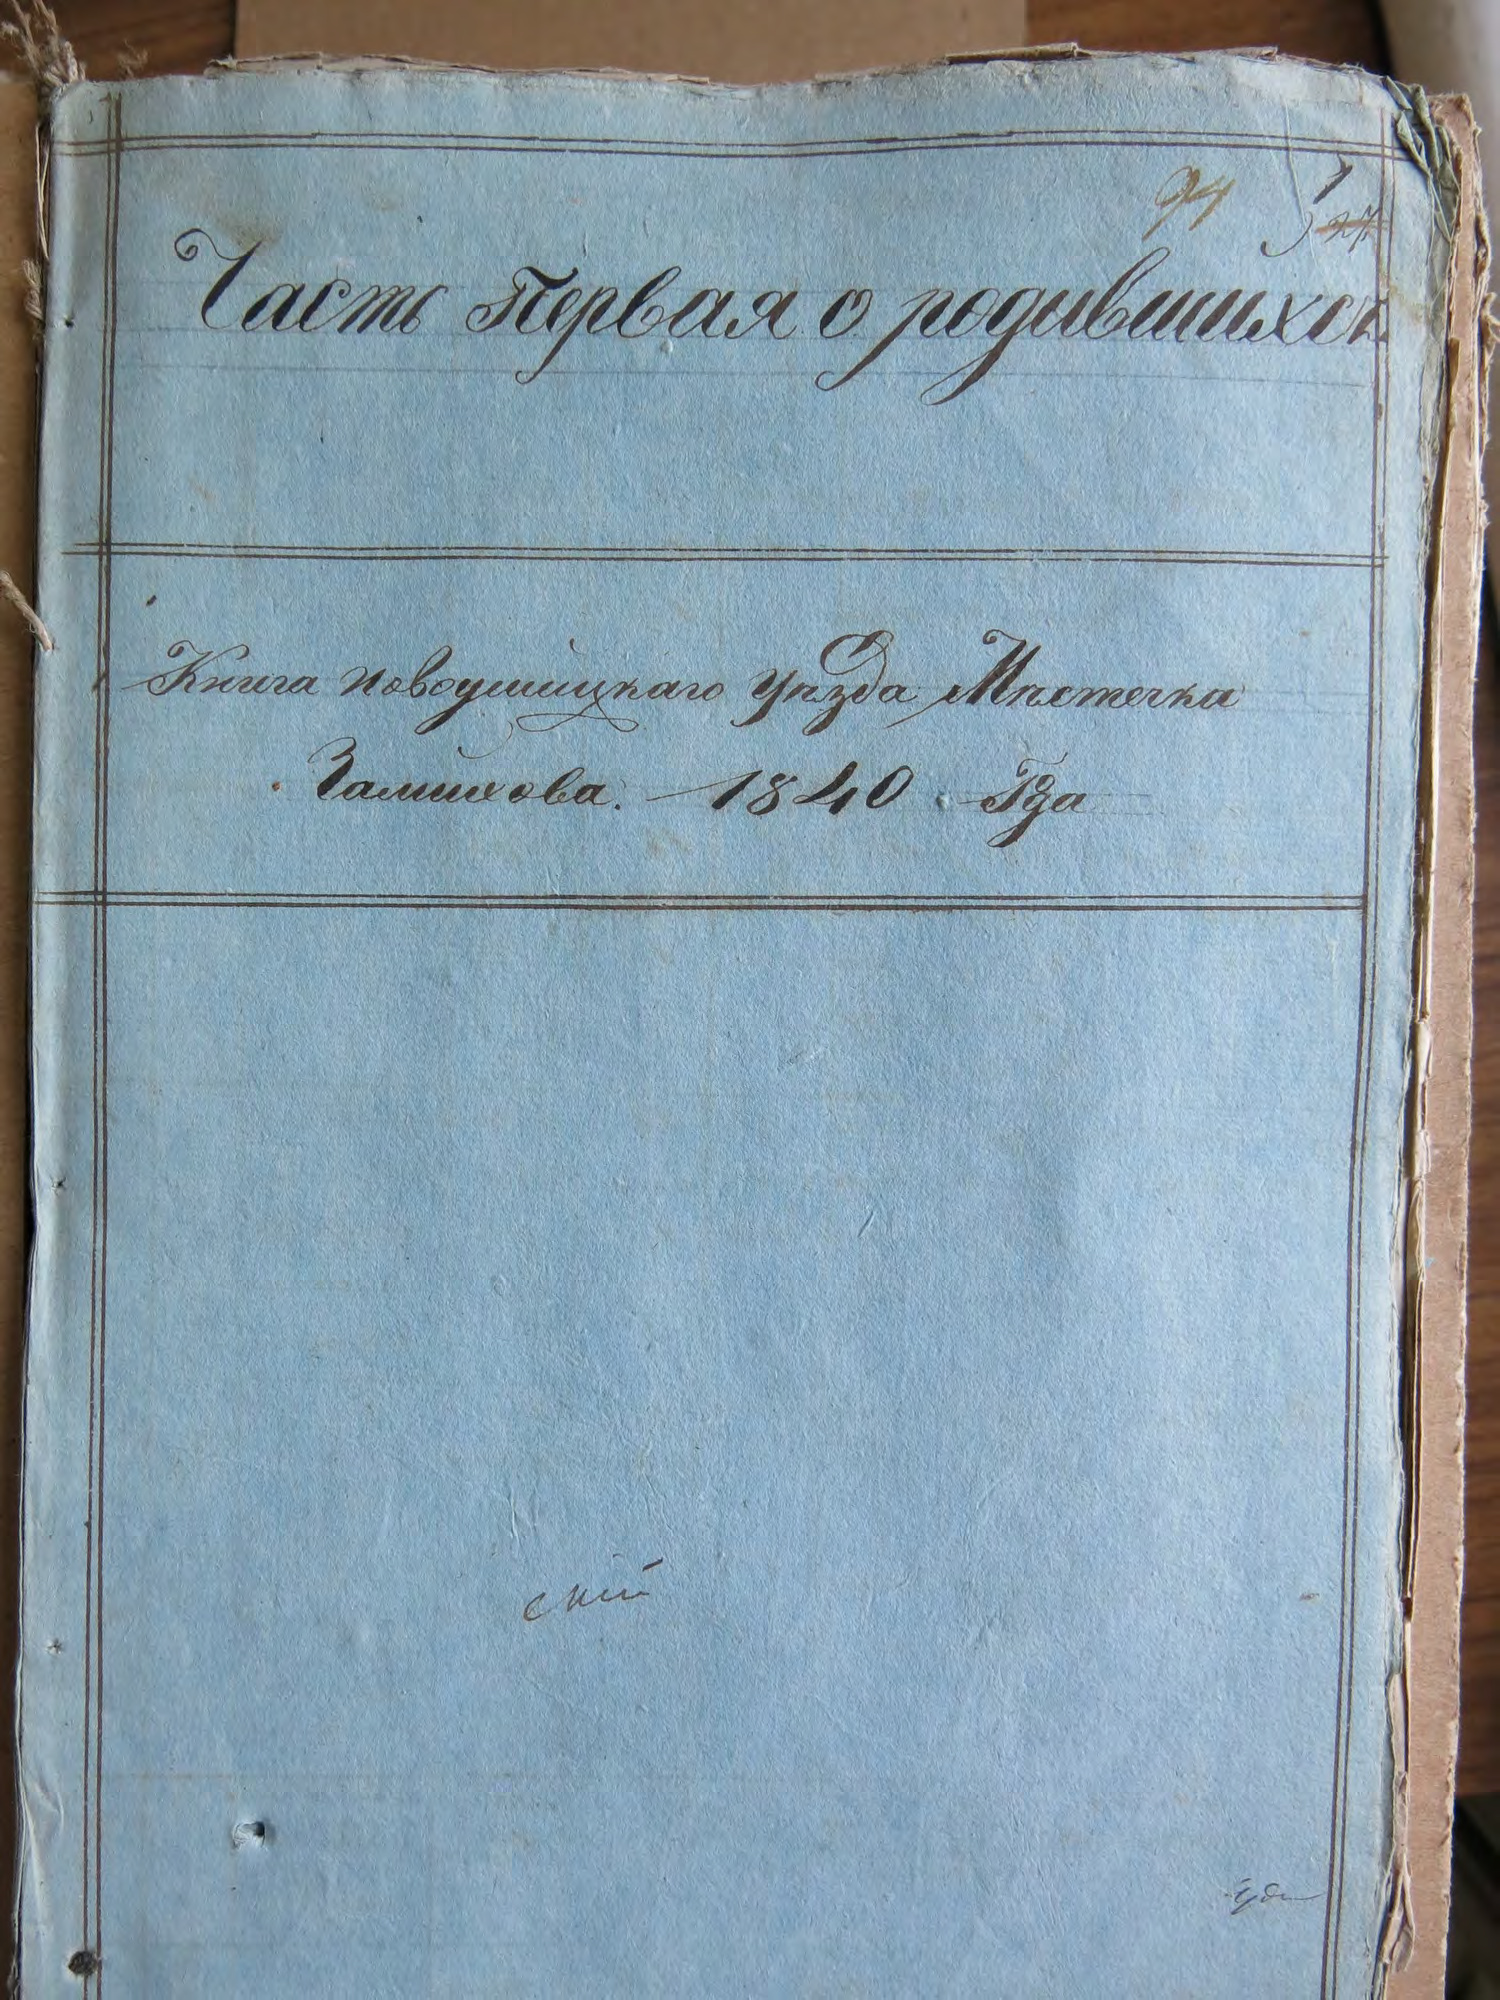 94
1
27
Часть Первая о родившихся
Книга Новоушицкаго Уѣзда Мѣстечка
Замихова. 1840 Года
скій